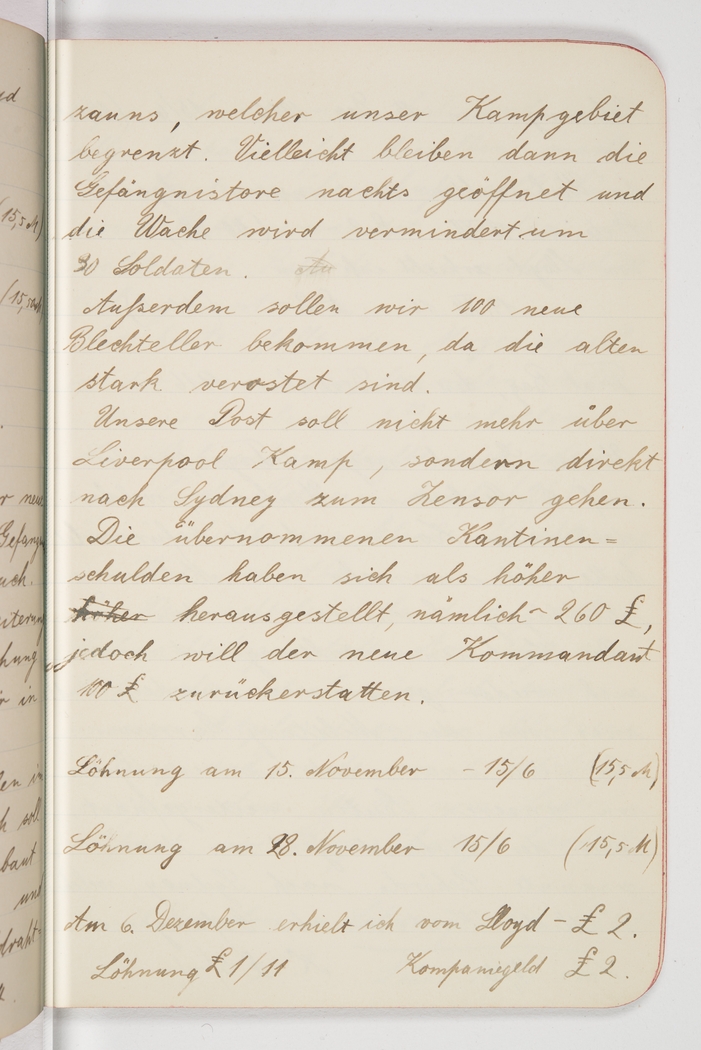 zauns, welcher unser Kampgebiet
begrenzt. Vielleicht bleiben dann die
Gefängnistore nachts geöffnet und
die Wache wird vermindert um
30 Soldaten.
Außerdem sollen wir 100 neue
Blechteller bekommen, da die alten
stark verostet sind.
Unsere Post soll nicht mehr über
Liverpool Kamp, sondern direkt
nach Sydney zum Zensor gehen.
Die übernommenen Kantinen=
schulden haben sich als höher
höher herausgestellt, nämlich ~ 260 £,
jedoch will der neue Kommandant
100 £ zurückerstatten.
Löhnung am 15. November - 15/6 (15,5 M)
Löhnung am 28. November 15/6 (15,5 M)
Am 6. Dezember erhielt ich vom Lloyd - £ 2.
Löhnung £ 1/11 Kompaniegeld £ 2.